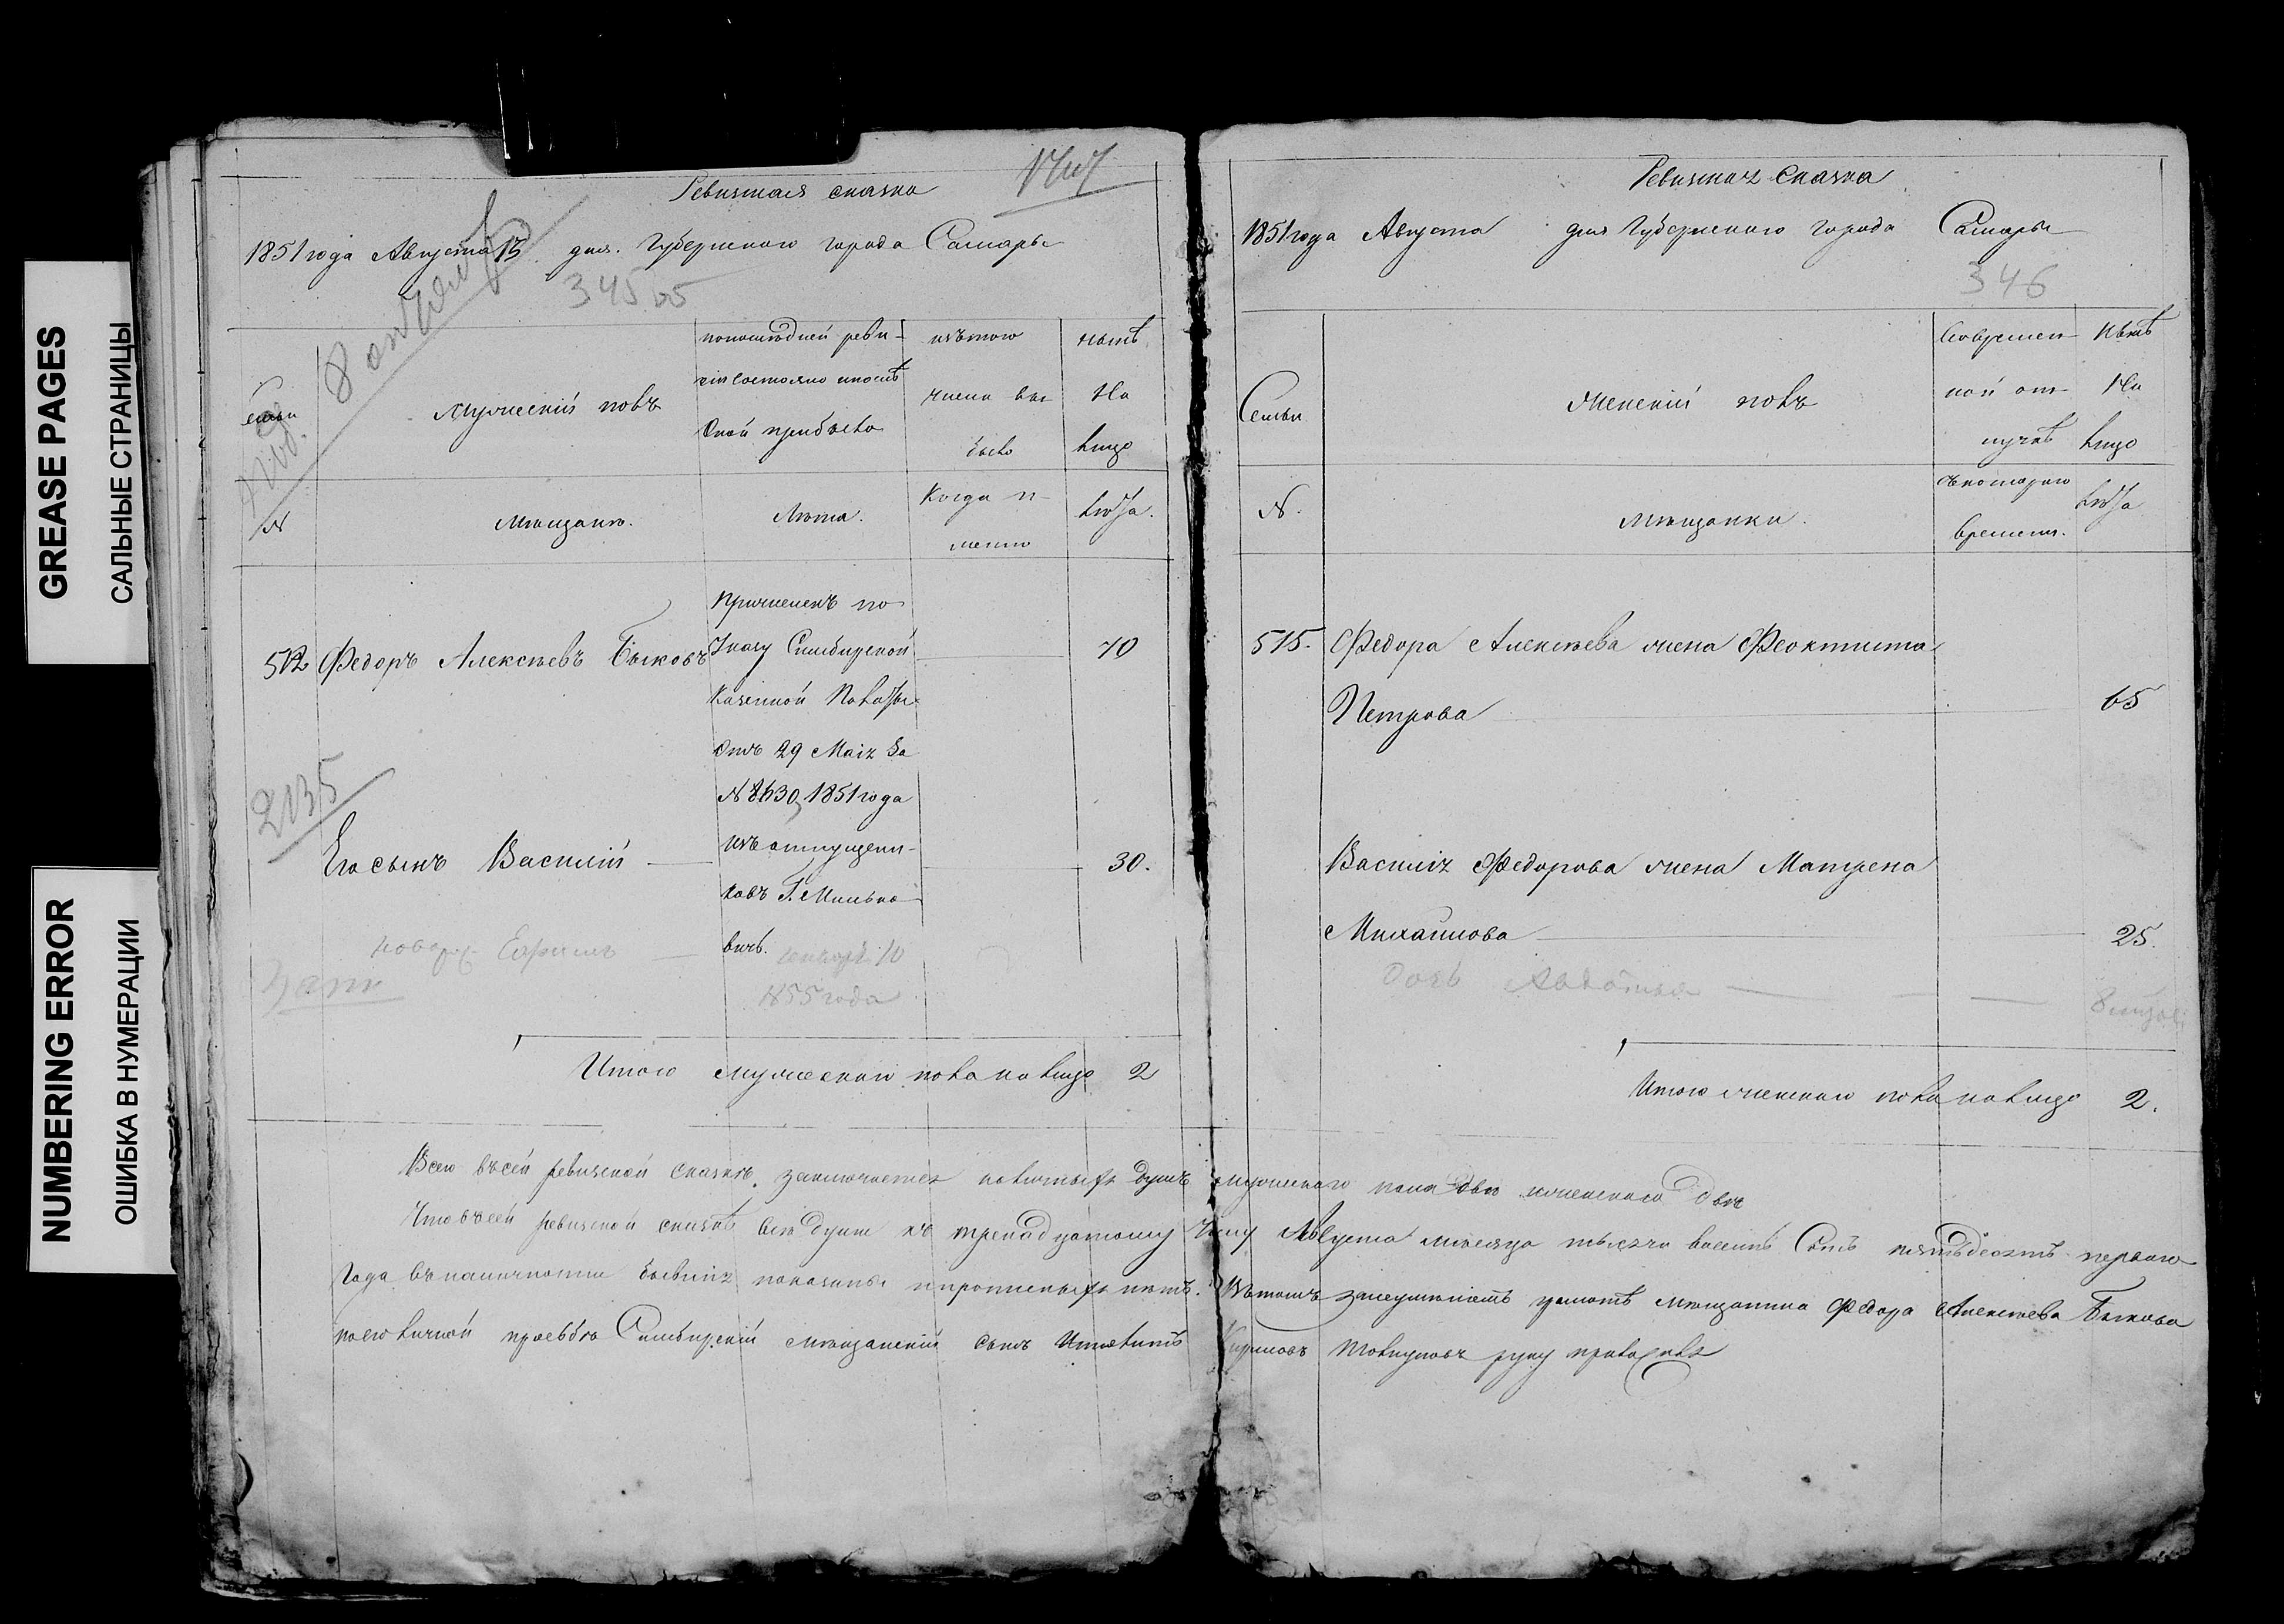 GREASE PAGES
САЛЬНЫЕ СТРАНИЦЫ
NUMBERING ERROR
ОШИБКА В НУМЕРАЦИИ
Ревизская сказка
1851 года Августа 13 дня. Губернскаго города Самары
345 об
Семьи
Мужескій полъ
по последней реви-
зіи состояло и после
оной прибыло
изъ того
числа вы
было
ныне
На
лицо
№
Мещане.
Лета.
Когда и
менно
Лета.
512 Федоръ Алексеевъ Быковъ
Причисленъ по
Указу Симбирской
Казенной Палаты
Отъ 29 Маія За
1851 года
изъ отпущенн-
ковъ Г.
70
2135
Его сынъ Василій
30.
1855 года
Итого мужескаго пола на лицо 2
Ревизская Сказка
1851 года Августа дня Губернскаго города Самары
346
Семьи
Женскій полъ
Во времен-
ной от-
лучке
Ныне
На
лицо
№.
Мещанки.
съ котораго
времени.
Лета
515. Федора Алексеева жена Феоктиста
Петрова
65
Василія Федорова жена Матрена
Михайлова
25.
дочь Авдотья
Итого женскаго пола на лицо 2.
Всего въ сей ревизской сказке заключается наличныхъ душъ мужескаго пола две женскаго две
Что въ сей ревизской сказке все души къ тринадцатому числу Августа месяца тысяча восемь Сотъ пятьдесятъ перваго
Года въ наличности бывшія показаны и прописныхъ нетъ. Въ томъ за неуменіемъ грамоте мещанина Федора Алексеева Быкова
по его личной прозьбе Симбирскій мещанскій сынъ руку приложилъ